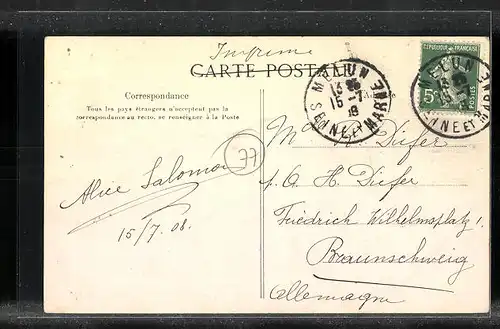 Imprimé
CARTE POSTALE
Correspondance
Tous les pays étrangers n'acceptent pas la
correspondance au recto, se renseigner à la Poste
MELUN
13
15-7
SEINE ET MARNE
RÉPUBLIQUE FRANÇAISE
5c
POSTES
MELUN
SEINE ET MARNE
77
Alice Salomon
15/7. 08.
Diefer
p. A. H. Diefer
Friedrich Wilhelmsplatz 1.
Braunschweig
Allemagne